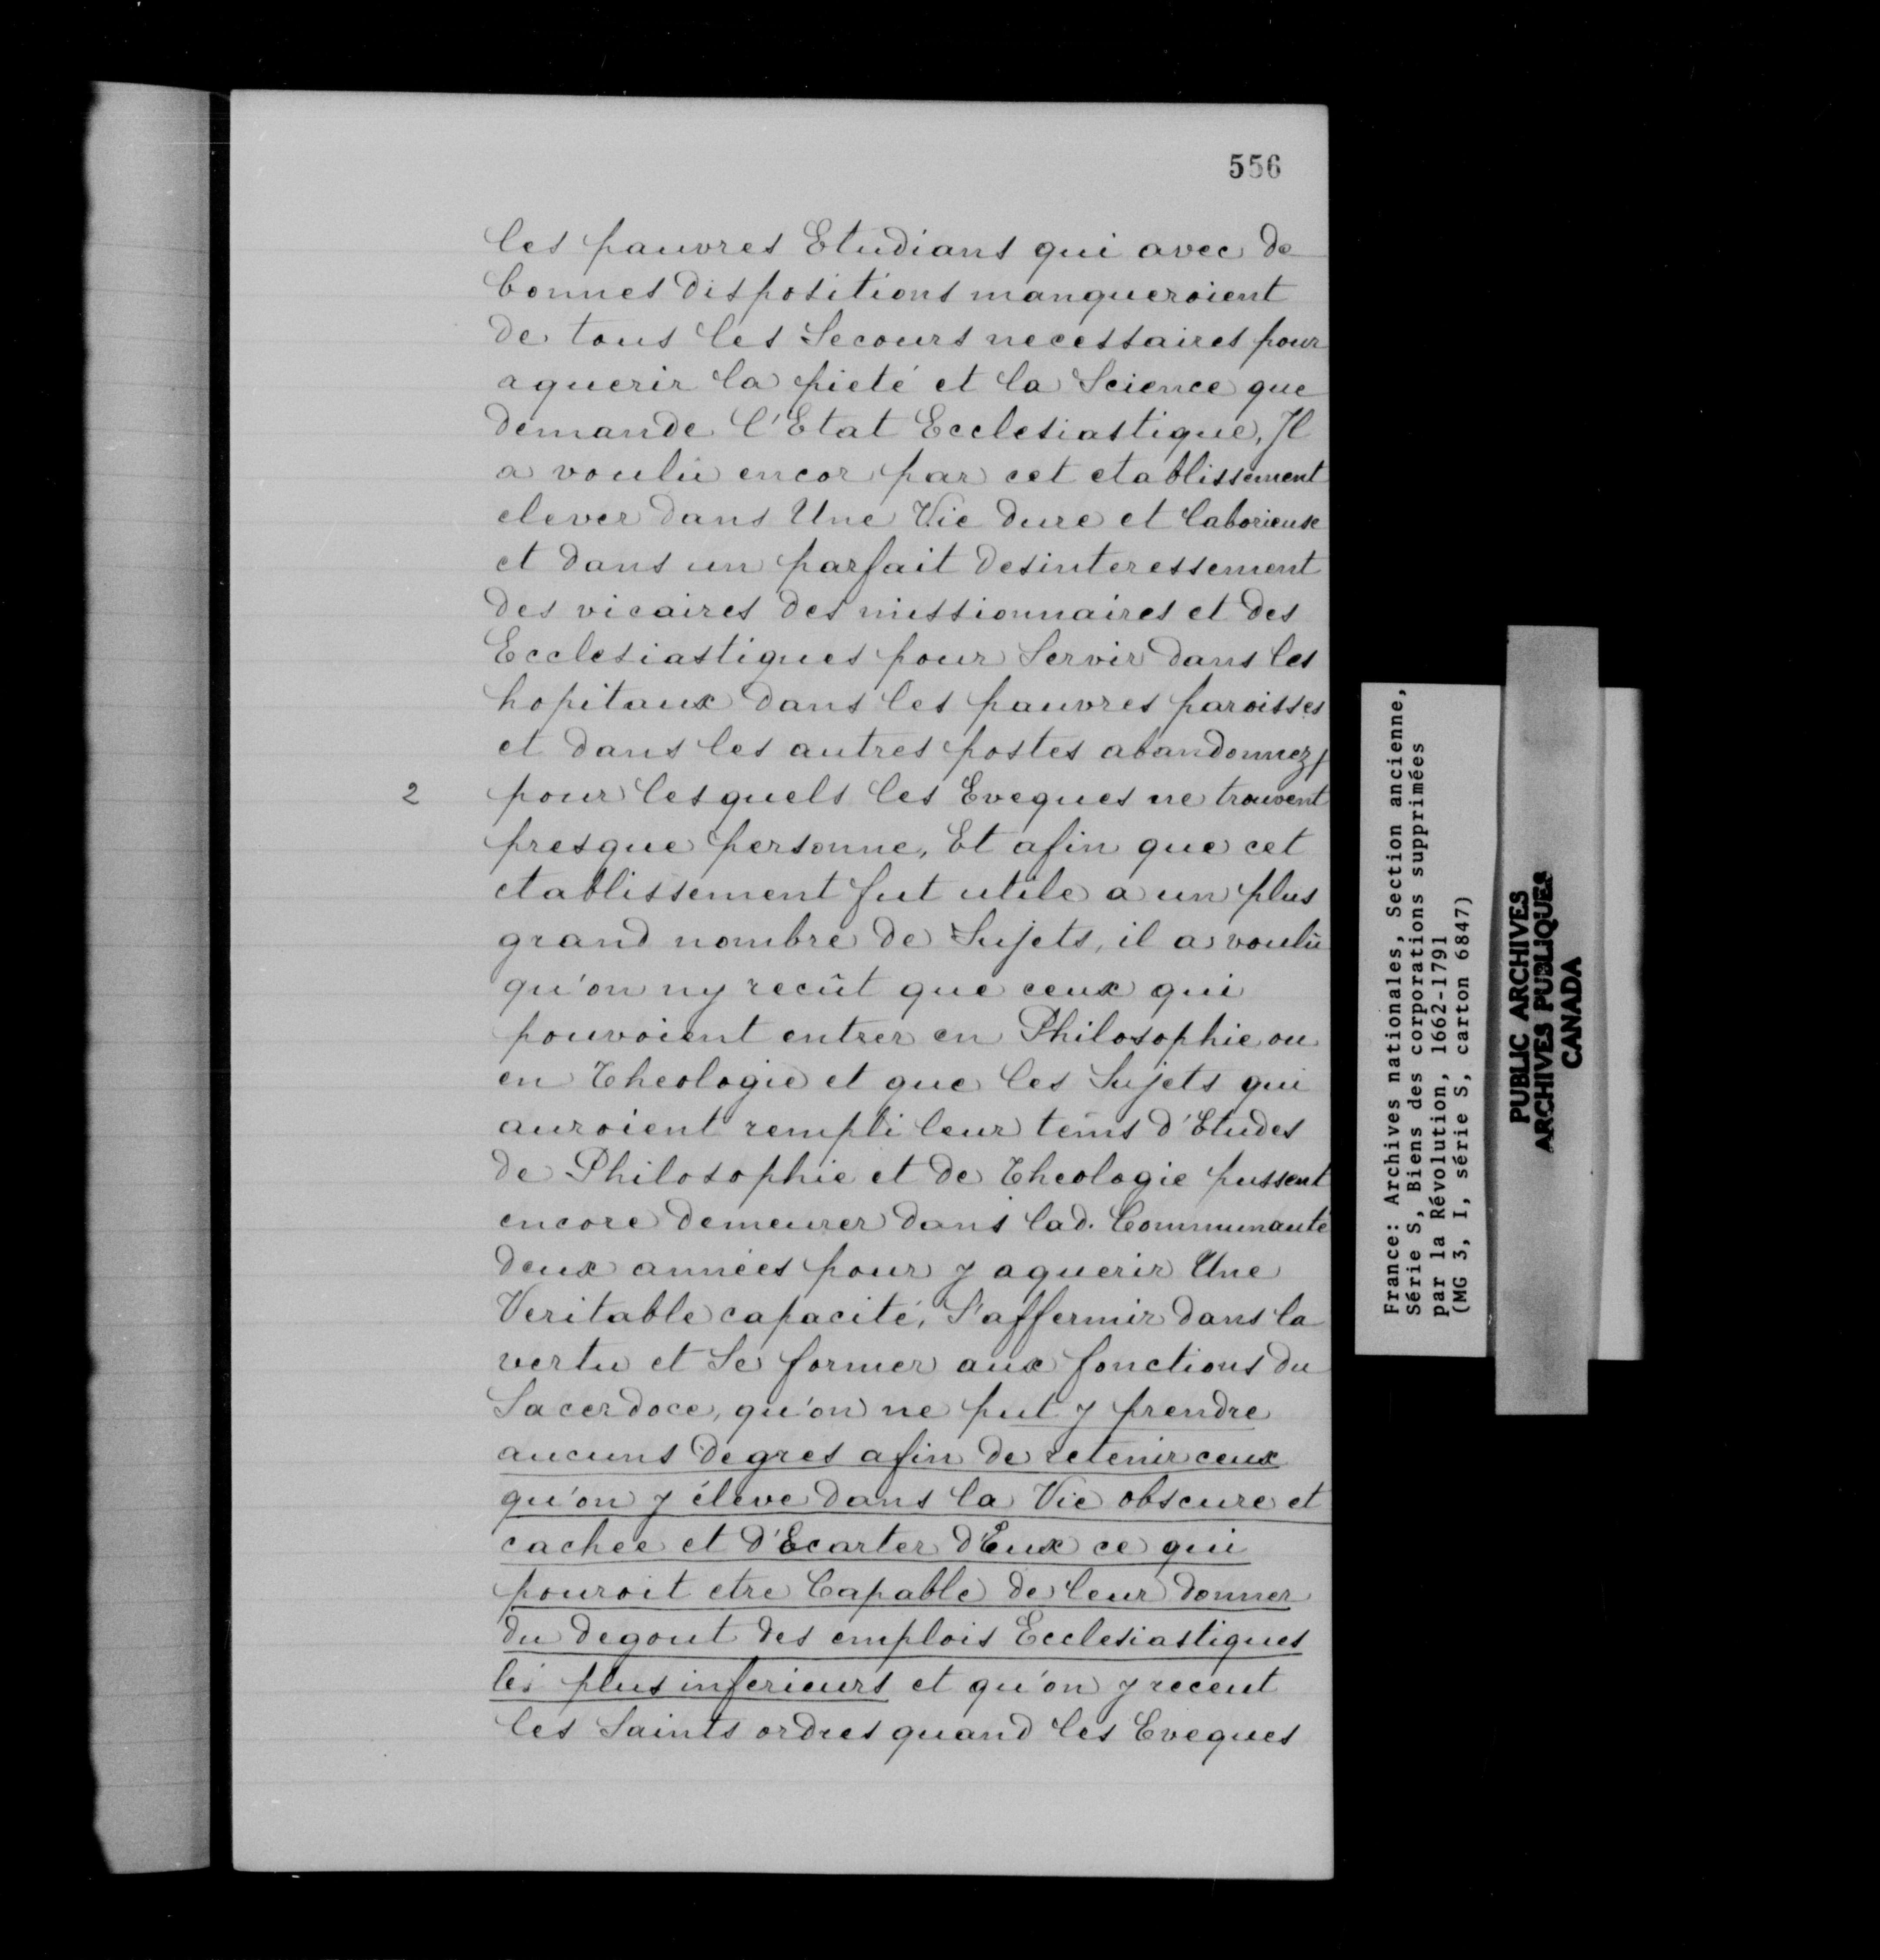 556
les pauvres Etudians qui avec de
bonnes dispositions manqueroient
de tous les Secours necessaires pour
aquerir la pieté et la Science que
demande l'Etat Ecclesiastique, Il
a voulu encor par cet etablissement
elever dans Une Vie dure et laborieuse
et dans un parfait desinteressement
des vicaires des missionnaires et des
Ecclesiastiques pour Servir dans les
hopitaux dans les pauvres paroisses
et dans les autres postes abandonnez/
2 pour lesquels les Eveques ne trouvent
presque personne, Et afin que cet
etablissement fut utile a un plus
grand nombre de Sujets, il a voulû
qu'on ny recût que ceux qui
pouvoient entrer en Philosophie ou
en Theologie et que les Sujets qui
auroient rempli leur tems d'Etudes
de Philosophie et de Theologie pussent
encore demeurer dans lad. Communauté
deux années pour y aquerir Une
Veritable capacité, S'affermir dans la
vertu et Se former aux fonctions du
Sacerdoce, qu'on ne put y prendre
aucuns degres afin de retenir ceux
qu'on y éleve dans la Vie obscure et
cachee et d'Ecarter d'Eux ce qui
pouroit etre Capable de leur donner
du degout des emplois Ecclesiastiques
les plus inferieurs et qu'on y receut
les Saints ordres quand les Eveques
France: Archives nationales, Section ancienne,
Série S, Biens des corporations supprimées
par la Révolution, 1662-1791
(MG 3, I, série S, carton 6847)
PUBLIC ARCHIVES
ARCHIVES PUBLIQUES
CANADA